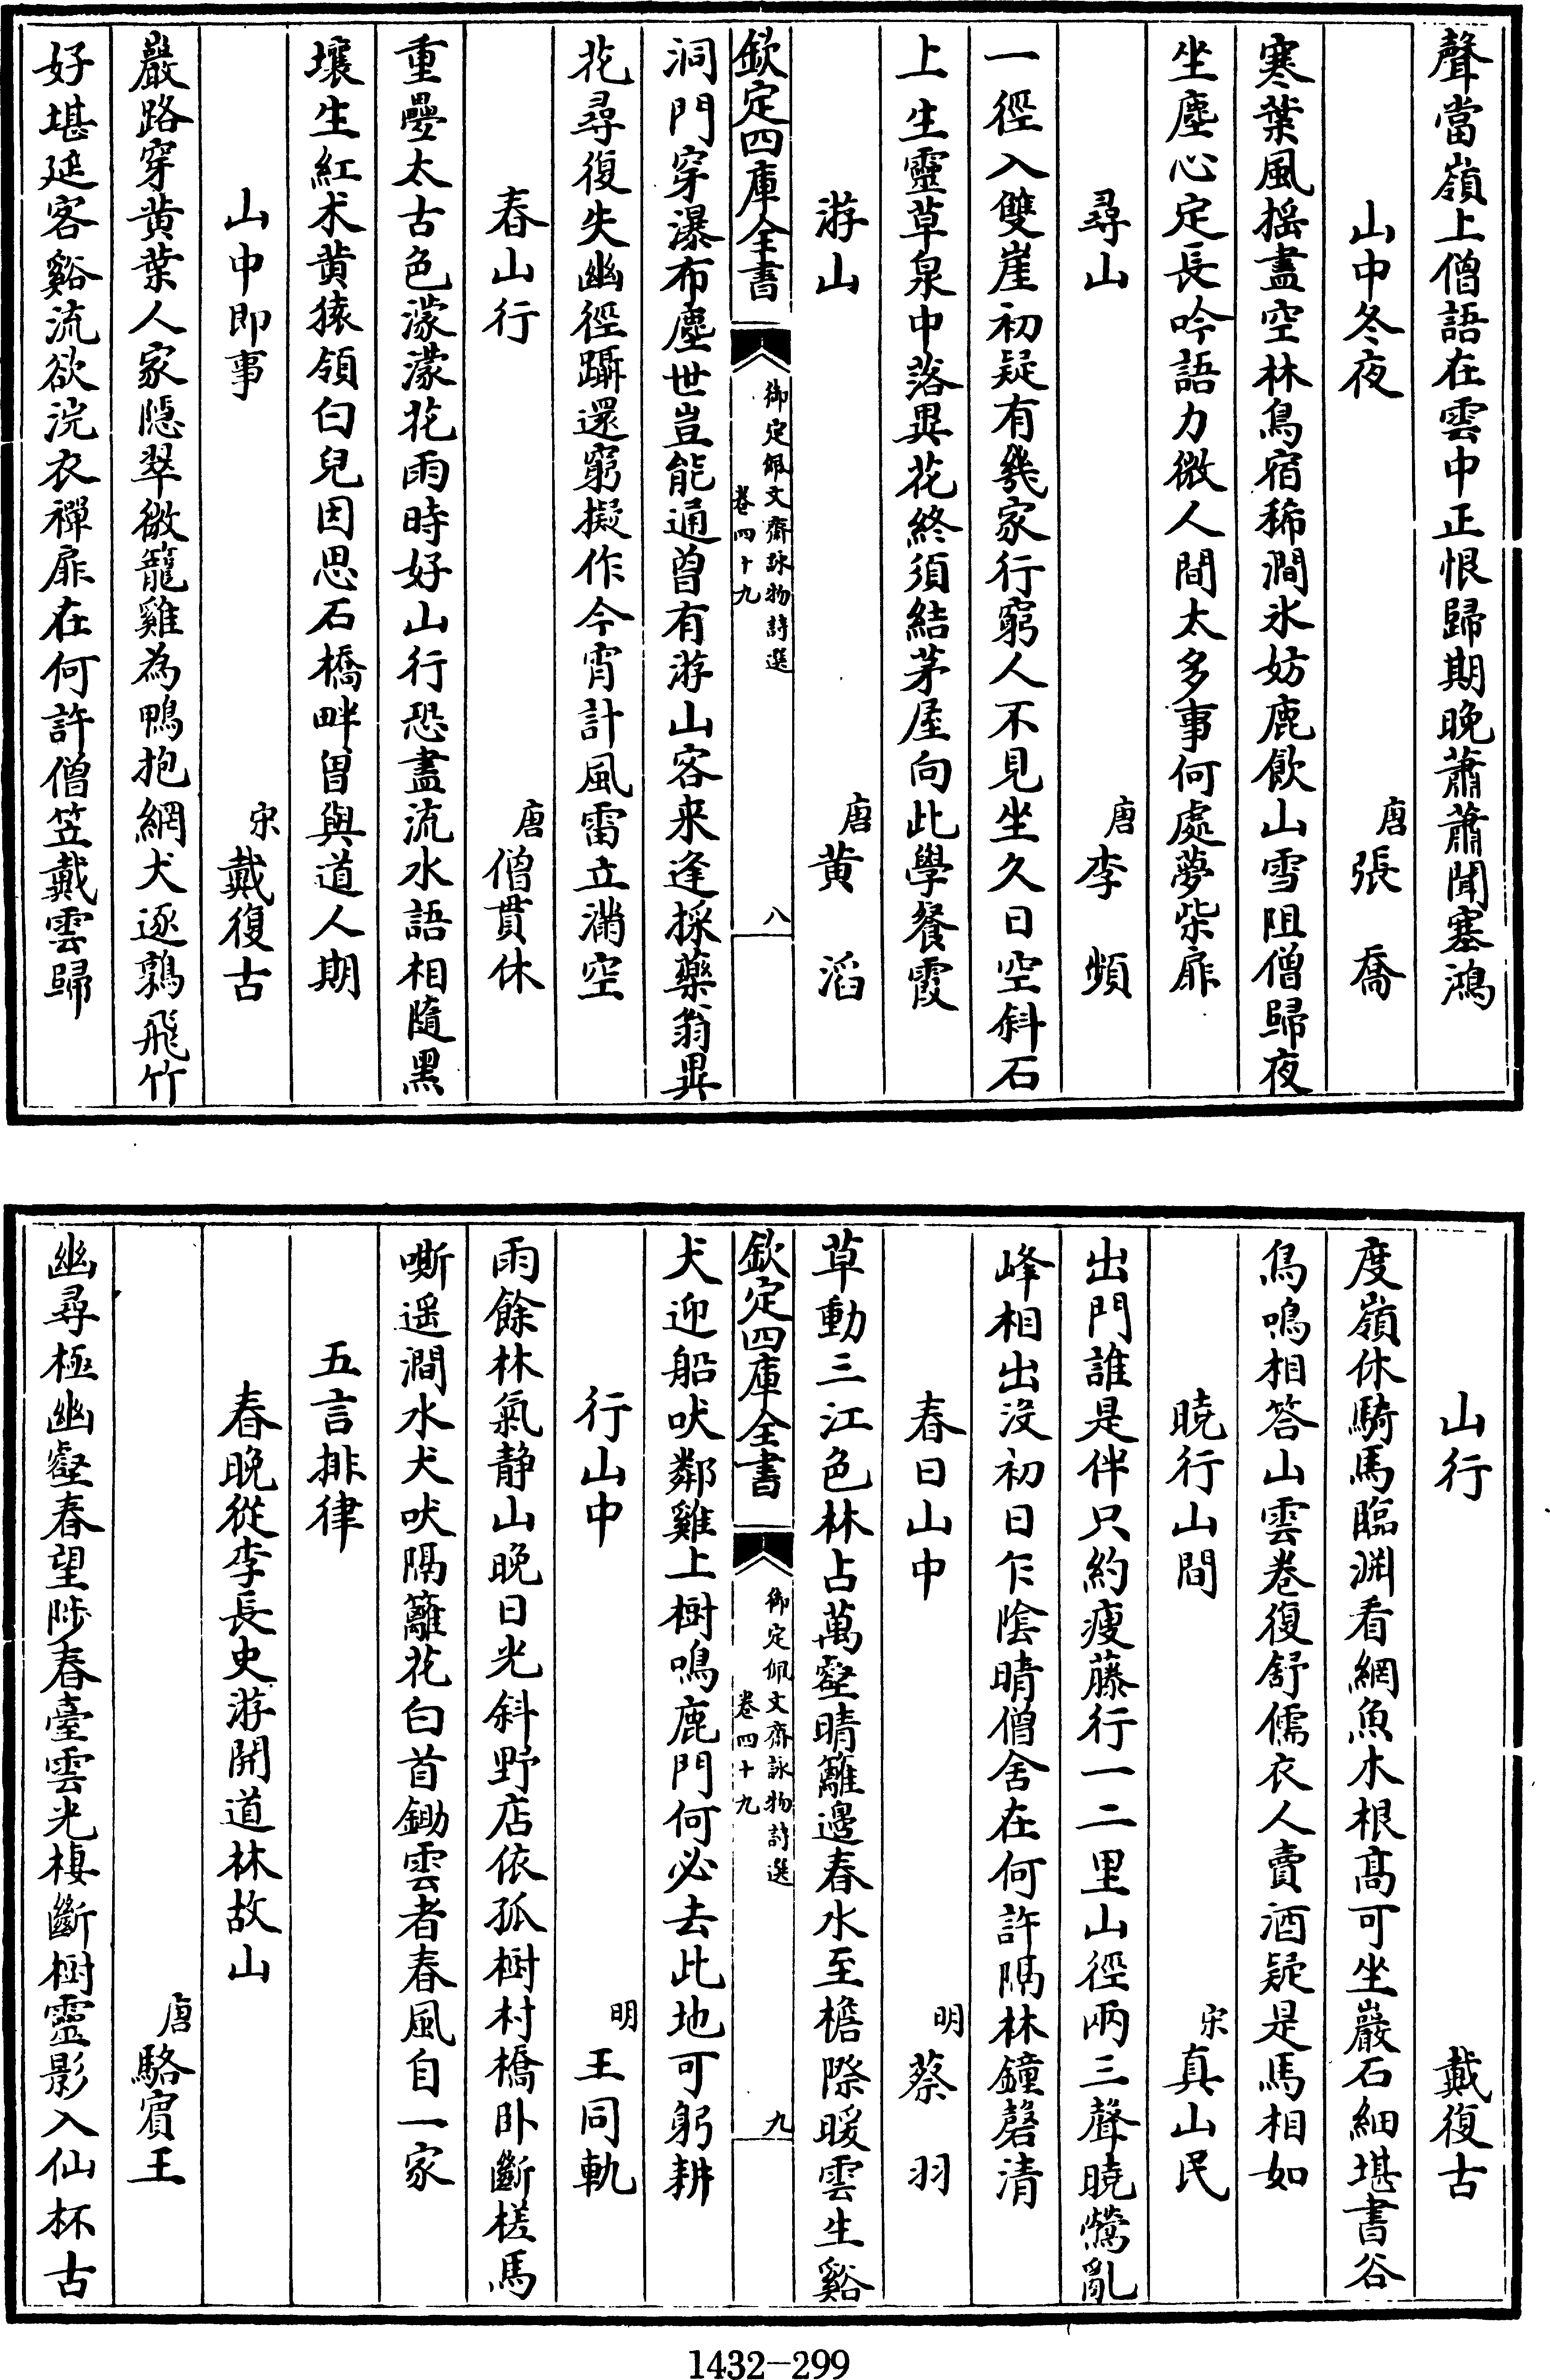 聲當嶺上僧語在雲中正恨歸期晚蕭蕭聞塞鴻
山中冬夜 唐 張喬
寒葉風搖盡空林鳥宿稀澗氷妨鹿飲山雪阻僧歸夜
坐塵心定長吟語力微人間太多事何處夢柴扉
尋山 唐 李頻
一徑入雙崖初疑有幾家行窮人不見坐久日空斜石
上生靈草泉中落異花終須結茅屋向此學餐霞
游山 唐 黄滔
洞門穿瀑布塵世豈能通曾有游山客来逢採藥翁異
欽定四庫全書 御定佩文齋詠物詩選 卷四十九 八
花尋復失幽徑躡還窮擬作今宵計風雷立滿空
春山行 唐 僧貫休
重疊太古色濛濛花雨時好山行恐盡流水語相隨黑
壤生紅朮黄猿領白兒因思石橋畔曾與道人期
山中即事 宋 戴復古
巖路穿黄葉人家隠翠微籠雞為鴨抱網犬逐鶉飛竹
好堪延客谿流欲浣衣禪扉在何許僧笠戴雲歸
山行 戴復古
度嶺休騎馬臨淵看網魚木根髙可坐巖石細堪書谷
鳥鳴相答山雲卷復舒儒衣人賣酒疑是馬相如
曉行山間 宋 真山民
出門誰是伴只約瘦藤行一二里山徑兩三聲曉鶯亂
峰相出没初日乍陰晴僧舍在何許隔林鐘磬清
春日山中 明 蔡羽
草動三江色林占萬壑晴籬邊春水至檐際暖雲生谿
欽定四庫全書 御定佩文齋詠物詩選 卷四十九 九
犬迎船吠鄰雞上樹鳴鹿門何必去此地可躬耕
行山中 明 王同軌
雨餘林氣静山晚日光斜野店依孤樹村橋卧斷槎馬
嘶遥澗水犬吠隔籬花白首鋤雲者春風自一家
五言排律
春晚從李長史游開道林故山
唐 駱賓王
幽尋極幽壑春望陟春臺雲光棲斷樹靈影入仙杯古
1432-299